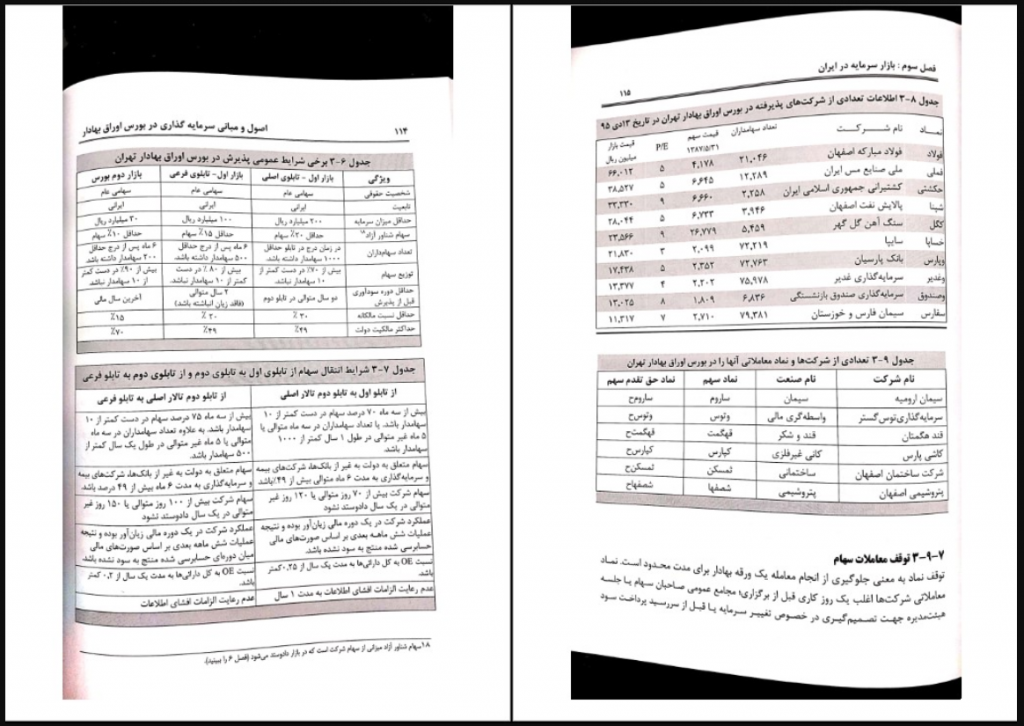 ۱۱۴ اصول و مبانی سرمایه گذاری در بورس اوراق بهادار
جدول ۶-۳ برخی شرایط عمومی پذیرش در بورس اوراق بهادار تهران
ویژگی بازار اول - تابلوی اصلی بازار اول - تابلوی فرعی بازار دوم بورس
شخصیت حقوقی سهامی عام سهامی عام سهامی عام
تابعیت ایرانی ایرانی ایرانی
حداقل میزان سرمایه ۲۰۰ میلیارد ریال ۱۰۰ میلیارد ریال ۳۰ میلیارد ریال
سهام شناور آزاد۱۸ حداقل ۲۰٪ سهام حداقل ۱۵٪ سهام حداقل ۱۰٪ سهام
تعداد سهام‌داران در زمان درج در تابلو حداقل ۱۰۰۰ سهامدار داشته باشد ۶ ماه پس از درج حداقل ۵۰۰ سهامدار داشته باشد ۶ ماه پس از درج حداقل ۲۰۰ سهامدار داشته باشد
توزیع سهام بیش از ۷۰٪ در دست کمتر از ۱۰ سهامدار نباشد. بیش از ۸۰٪ در دست کمتر از ۱۰ سهامدار نباشد. بیش از ۹۰٪ در دست کمتر از ۱۰ سهامدار نباشد
حداقل دوره سودآوری قبل از پذیرش دو سال متوالی در تابلو دوم ۲ سال متوالی (فاقد زیان انباشته باشد) آخرین سال مالی
حداقل نسبت مالکانه ۳۰٪ ۲۰٪ ۱۵٪
حداکثر مالکیت دولت ۴۹٪ ۴۹٪ ۷۰٪
جدول ۷-۳ شرایط انتقال سهام از تابلوی اول به تابلوی دوم و از تابلوی دوم به تابلو فرعی
از تابلو اول به تابلو دوم تالار اصلی از تابلو دوم تالار اصلی به تابلو فرعی
بیش از سه ماه ۷۰ درصد سهام در دست کمتر از ۱۰ سهامدار باشد. یا تعداد سهامداران در سه ماه متوالی یا ۵ ماه غیر متوالی در طول ۱ سال کمتر از ۱۰۰۰ سهامدار باشد.
بیش از سه ماه ۷۵ درصد سهام در دست کمتر از ۱۰ سهامدار باشد. به علاوه تعداد سهامداران در سه ماه متوالی یا ۵ ماه غیر متوالی در طول یک سال کمتر از ۵۰۰ سهامدار باشد.
سهام متعلق به دولت به غیر از بانک‌ها، شرکت‌های بیمه و سرمایه‌گذاری به مدت ۶ ماه متوالی بیش از ۴۹٪باشد
سهام متعلق به دولت به غیر از بانک‌ها، شرکت‌های بیمه و سرمایه‌گذاری به مدت ۶ ماه بیش از ۴۹ درصد باشد.
سهام شرکت بیش از ۷۰ روز متوالی یا ۱۲۰ روز غیر متوالی در یک سال دادوستد نشود
سهام شرکت بیش از ۱۰۰ روز متوالی یا ۱۵۰ روز غیر متوالی در یک سال دادوستد نشود
عملکرد شرکت در یک دوره مالی زیان‌آور بوده و نتیجه عملیات شش ماهه بعدی بر اساس صورت‌های مالی حسابرسی شده منتج به سود نشده باشد.
عملکرد شرکت در یک دوره مالی زیان‌آور بوده و نتیجه عملیات شش ماهه بعدی بر اساس صورت‌های مالی میان دوره‌ای حسابرسی شده منتج به سود نشده باشد.
نسبت OE به کل دارائی‌ها به مدت یک سال از ۰٫۲۵ کمتر باشد.
نسبت OE به کل دارائی‌ها به مدت یک سال از ۰٫۲ کمتر باشد.
عدم رعایت الزامات افشای اطلاعات به مدت ۱ سال عدم رعایت الزامات افشای اطلاعات
۱۸سهام شناور آزاد میزانی از سهام شرکت است که در بازار دادوستد می‌شود (فصل ۶ را ببینید).
فصل سوم : بازار سرمایه در ایران ۱۱۵
جدول ۸-۳ اطلاعات تعدادی از شرکت‌های پذیرفته در بورس اوراق بهادار تهران در تاریخ ۱۳دی ۹۵
نمـاد نام شـــرکــت تعداد سهامداران قیمت سهم ۱۳۸۷/۵/۳۱ P/E قیمت بازار میلیون ریال
فولاد فولاد مبارکه اصفهان ۲۱,۰۴۶ ۴,۱۷۸ ۵ ۶۶,۰۱۲
فملی ملی صنایع مس ایران ۱۲,۲۸۹ ۶,۶۴۵ ۵ ۳۸,۵۲۷
حکشتی کشتیرانی جمهوری اسلامی ایران ۲,۲۵۸ ۶,۶۶۰ ۹ ۳۳,۳۳۰
شپنا پالایش نفت اصفهان ۳,۹۴۶ ۶,۷۳۳ ۵ ۲۸,۰۴۴
کگل سنگ آهن گل گهر ۵,۴۵۹ ۲۶,۷۷۹ ۹ ۲۳,۵۶۶
خساپا سایپا ۷۲,۲۱۹ ۲,۰۹۹ ۳ ۲۱,۸۳۰
وپارس بانک پارسیان ۷۲,۷۶۳ ۲,۳۵۲ ۵ ۱۷,۴۳۸
وغدیر سرمایه‌گذاری غدیر ۷۵,۹۷۸ ۲,۲۰۲ ۴ ۱۳,۳۷۷
وصندوق سرمایه‌گذاری صندوق بازنشستگی ۶,۸۳۶ ۱,۸۰۹ ۸ ۱۳,۰۲۵
سفارس سیمان فارس و خوزستان ۷۹,۳۸۱ ۲,۷۱۰ ۷ ۱۱,۳۱۷
جدول ۹-۳ تعدادی از شرکت‌ها و نماد معاملاتی آنها را در بورس اوراق بهادار تهران
نام شرکت نام صنعت نماد سهم نماد حق تقدم سهم
سیمان ارومیه سیمان ساروم ساروم‌ح
سرمایه‌گذاری‌توس‌گستر واسطه‌گری مالی وتوس وتوس‌ح
قند هگمتان قند و شکر قهگمت قهگمت‌ح
کاشی پارس کانی غیرفلزی کپارس کپارس‌ح
شرکت ساختمان اصفهان ساختمانی ثمسکن ثمسکن‌ح
پتروشیمی اصفهان پتروشیمی شصفها شصفهاح
۷-۹-۳ توقف معاملات سهام
توقف نماد به معنی جلوگیری از انجام معامله یک ورقه بهادار برای مدت محدود است. نماد
معاملاتی شرکت‌ها اغلب یک روز کاری قبل از برگزاری؛ مجامع عمومی صاحبان سهام یا جلسه
هیئت‌مدیره جهت تصمیم‌گیری در خصوص تغییر سرمایه یا قبل از سررسید پرداخت سود